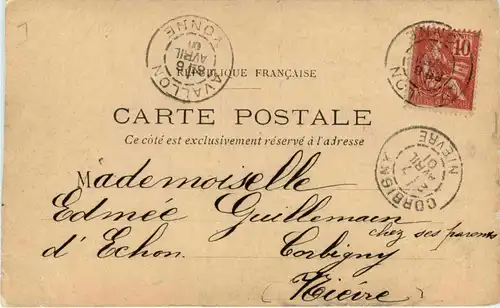 AVALLON
YONNE
8E 6
AVRIL
01
RÉPUBLIQUE FRANÇAISE
10
CARTE POSTALE
Ce côté est exclusivement réservé à l'adresse
CORBIGNY
NIÈVRE
7
AVRIL
01
Mademoiselle
Edmée Guillemain
chez ses parents
d'Echon. Corbigny
(Nièvre